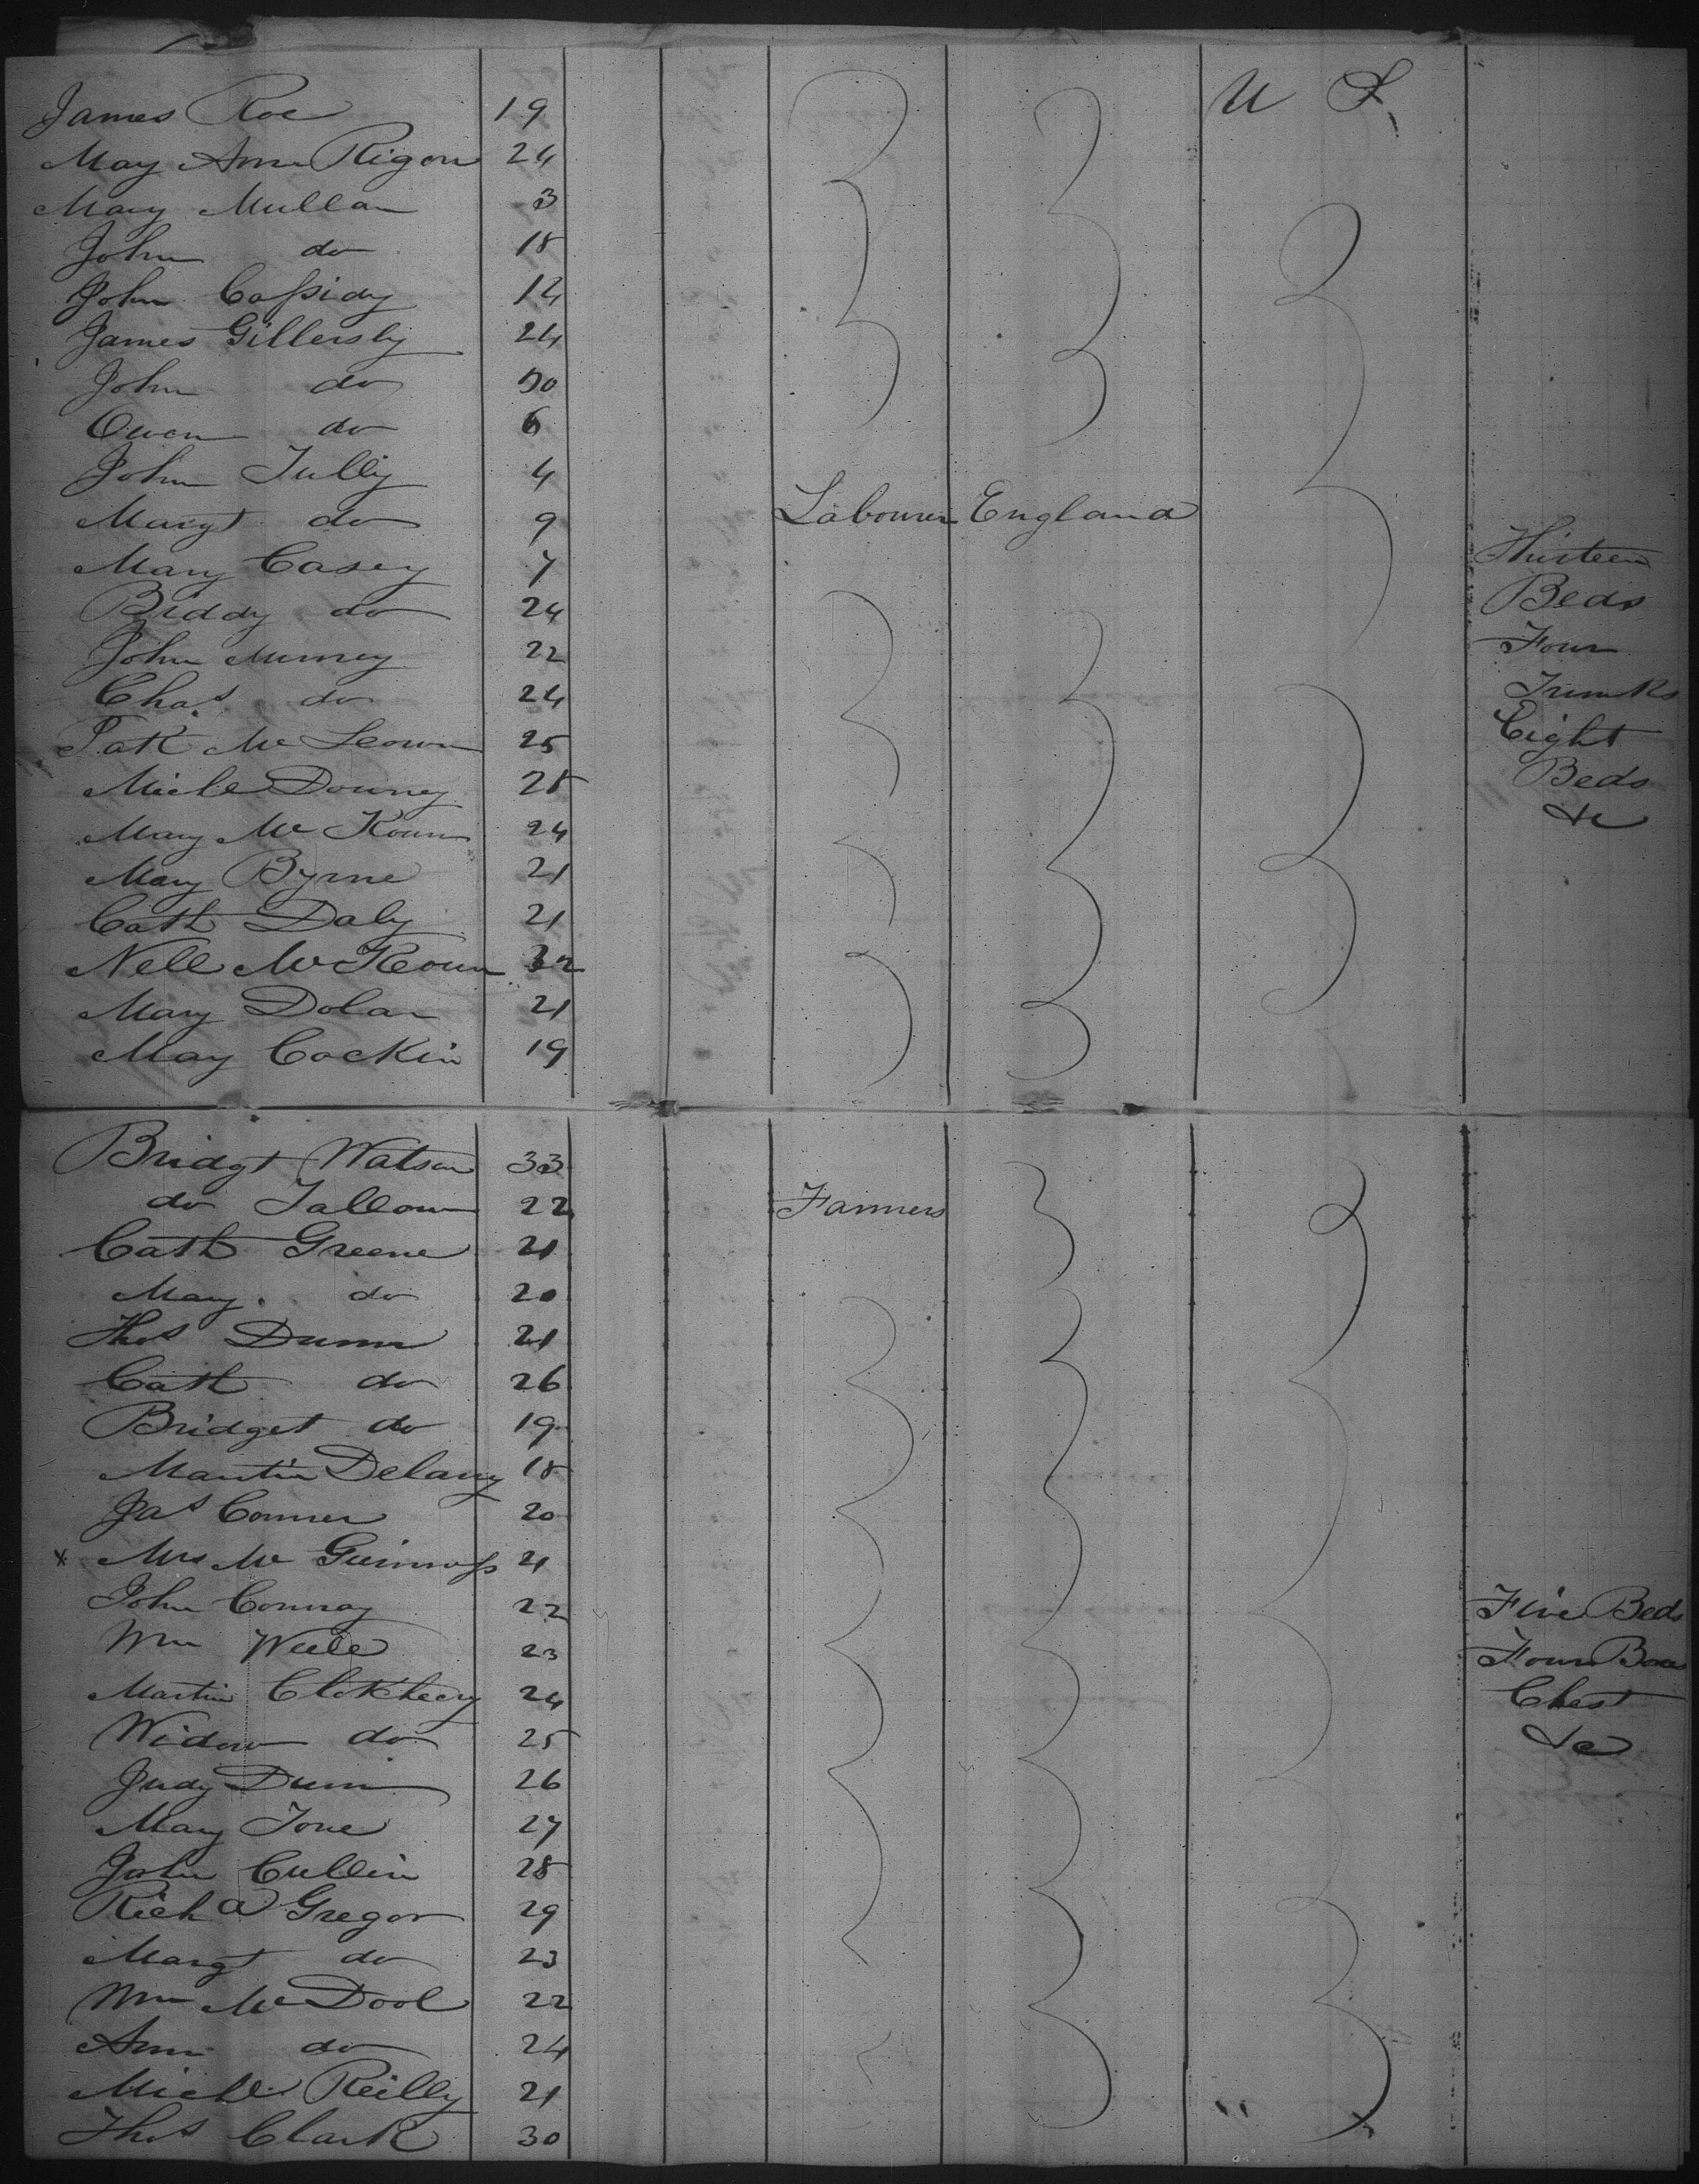 James Roe 19 U S
May Ann Rigon 24
Mary Mullan 3
John do 18
John Cassidy 14
James Gillersby 24
John do 30
Owen do 6
John Tully 4
Margt do 9 Labourer England
Mary Casey 7 Thirteen
Biddy do 24 Beds
John Murrey 22 Four
Chas do 24 Trunks
Pat Mc Keown 25 Eight
Michl Downey 28 Beds
Mary Mc Koun 24 &c
Mary Byrne 21
Cath Daly 21
Nell McKeoun 32
Mary Dolan 21
May Cockin 19
Bridgt Watson 33
do Tallown 22 Farmers
Cath Greene 21
Mary do 20
Thos Dunn 21
Cath do 26
Bridget do 19
Martin Delany 18
Jas Conner 20
x Mrs Mc Guinness 21
John Conway 22 Five Beds
Wm 23 Four
Martin 24 Chest
Widow do 25 &c
Judy Dunn 26
Mary Tone 27
John Cullin 28
Richd Gregor 29
Margt do 23
Wm Mc Dool 22
Ann do 24
Michl Reilly 21 "
Thos Clark 30